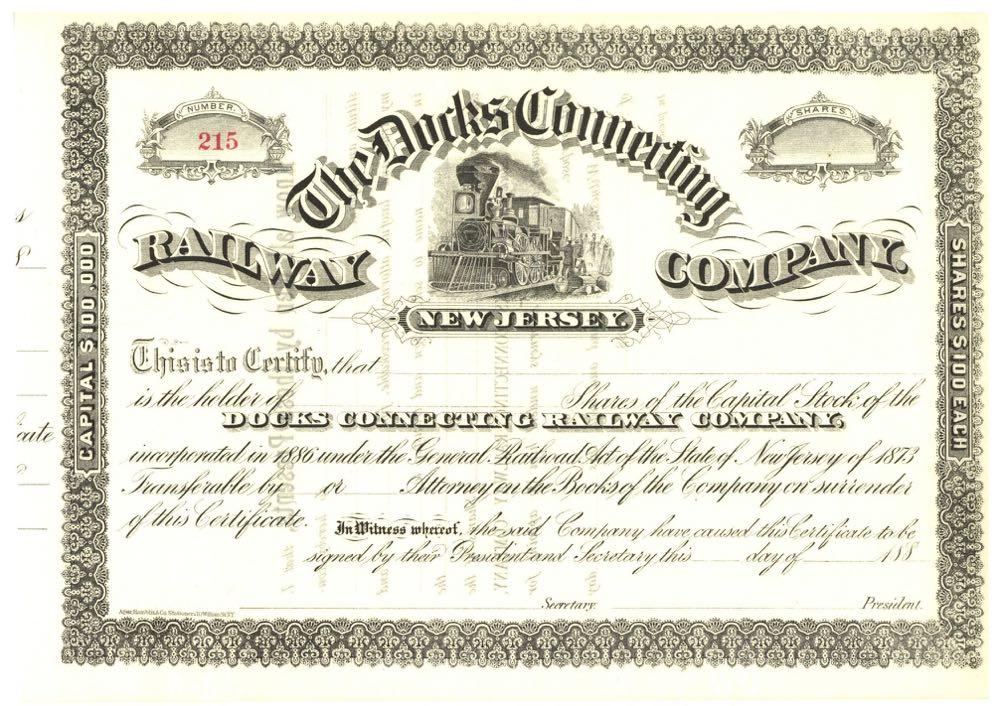 NUMBER.
215
SHARES
The Docks Connecting
RAILWAY COMPANY.
NEW JERSEY.
CAPITAL $100,000
SHARES $100 EACH
This is to Certify, that
is the holder of Shares of the Capital Stock of the
DOCKS CONNECTING RAILWAY COMPANY,
incorporated in 1886 under the General Railroad Act of the State of New Jersey of 1873
Transferable by or Attorney on the Books of the Company on surrender
of this Certificate.
In Witness whereof, the said Company have caused this Certificate to be
signed by their President and Secretary this day of 188
Secretary. President.